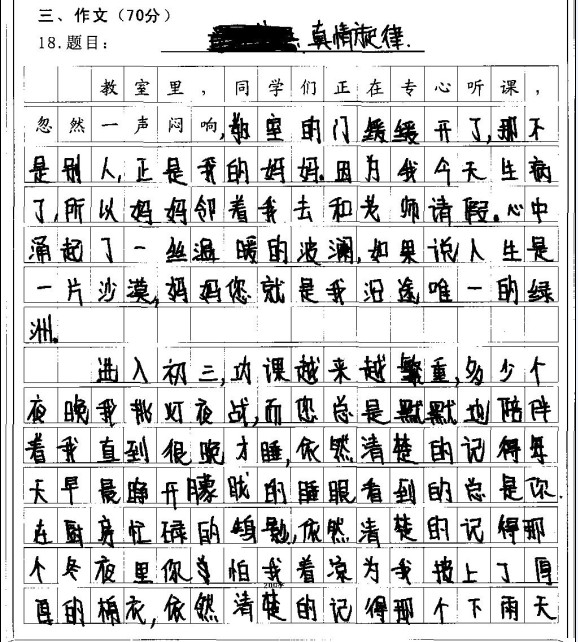 三、作文（70分）
18.题目：真情旋律.
教室里，同学们正在专心听课，
忽然一声闷响,教室的门缓缓开了,那不
是别人,正是我的妈妈。因为我今天生病
了,所以妈妈邻着我去和老师请假。心中
涌起了一丝温暖的波澜,如果说人生是
一片沙漠,妈妈您就是我沿途唯一的绿
洲。
进入初三,功课越来越繁重,多少个
夜晚我挑灯夜战,而您总是默默地陪伴
着我直到很晚才睡,依然清楚的记得每
天早晨睁开朦胧的睡眼看到的总是你
在厨房忙碌的身影,依然清楚的记得那
个冬夜里你怕我着凉为我披上了厚
厚的棉衣,依然清楚的记得那个下雨天